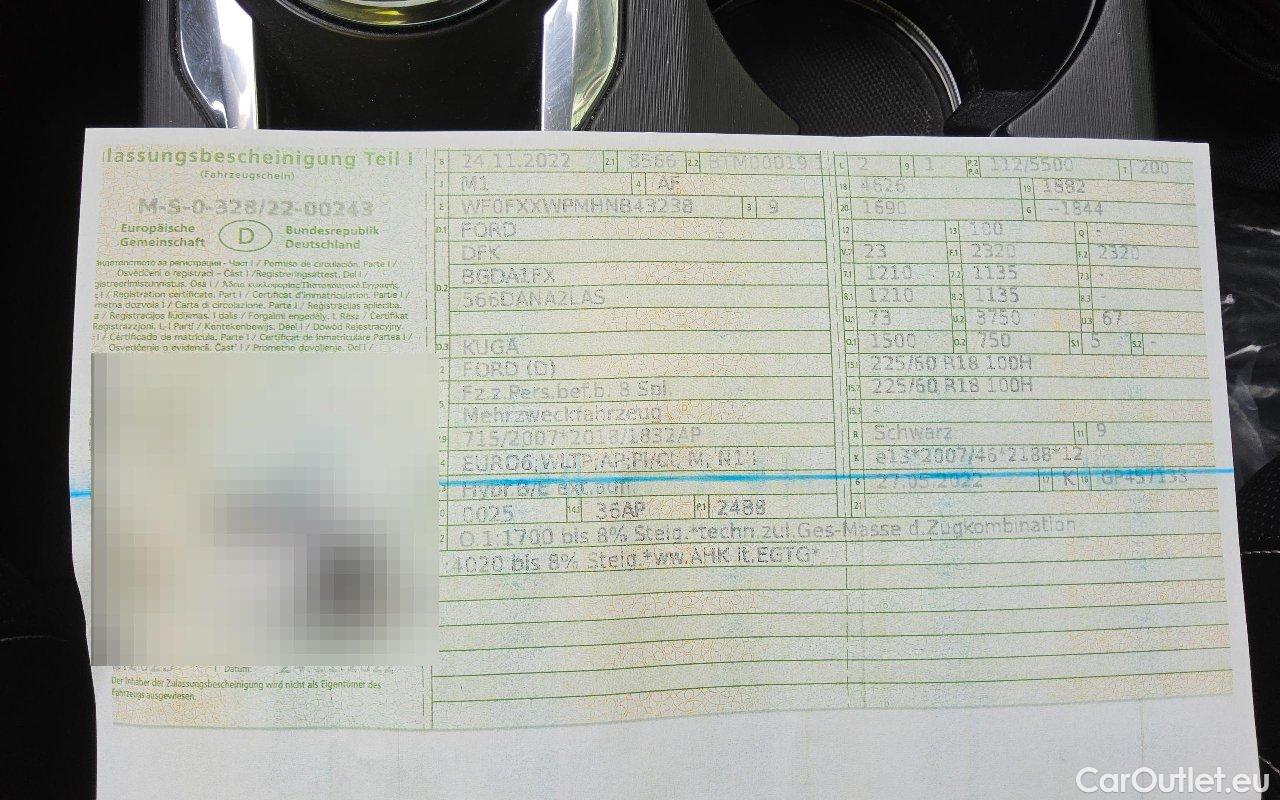 lassungsbescheinigung Teil I
(Fahrzeugschein)
M-S-0-328/22-00243
Europäische Gemeinschaft
D
Bundesrepublik Deutschland
Osvědčení o registraci – Část I / Registreringsattest. Del I /
/ Registration certificate. Part I / Certificat d'immatriculation. Partie I /
/ Carta di circolazione. Parte I / Registrācijas apliecība.
/ Registracijos liudijimas. I dalis / Forgalmi engedély. I. Rész / Ċertifikat
/ Kentekenbewijs. Deel I / Dowód Rejestracyjny.
/ Certificado de matrícula. Parte I / Certificat de înmatriculare Partea I /
Osvedčenie o evidencii. Časť I / Prometno dovoljenje. Del I /
Datum:
Der Inhaber der Zulassungsbescheinigung wird nicht als Eigentümer des
Fahrzeugs ausgewiesen.
B 24.11.2022 2.1 8566 2.2 BTM00019
J M1 4 AF
E WF0FXXWPMHNB43238 3 9
D.1 FORD
DFK
D.2 BGDA1FX
566DANA2LAS
D.3 KUGA
2 FORD (D)
5 Fz.z.Pers.bef.b. 8 Spl.
Mehrzweckfahrzeug
V.9 715/2007*2018/1832AP
EURO6;WLTP;AP;PI/CI; M, N1 I
Hybr.B/E ext.aufl.
0025 14.1 36AP P.1 2488
O.1:1700 bis 8% Steig.*techn.zul.Ges-Masse d.Zugkombination
:4020 bis 8% Steig.*ww.AHK lt.EGTG*
L 2 9 1 P.2 P.4 112/5500 T 200
18 4626 19 1882
20 1690 G --1844
12 - 13 100 Q -
V.7 23 F.1 2320 F.2 2320
7.1 1210 7.2 1135 7.3 -
8.1 1210 8.2 1135 8.3 -
U.1 73 U.2 3750 U.3 67
O.1 1500 O.2 750 S.1 5 S.2 -
15.1 225/60 R18 100H
15.2 225/60 R18 100H
15.3 -
R Schwarz 11 9
K e13*2007/46*2188*12
6 27.05.2022 17 K 16 GP457133
21
CarOutlet.eu